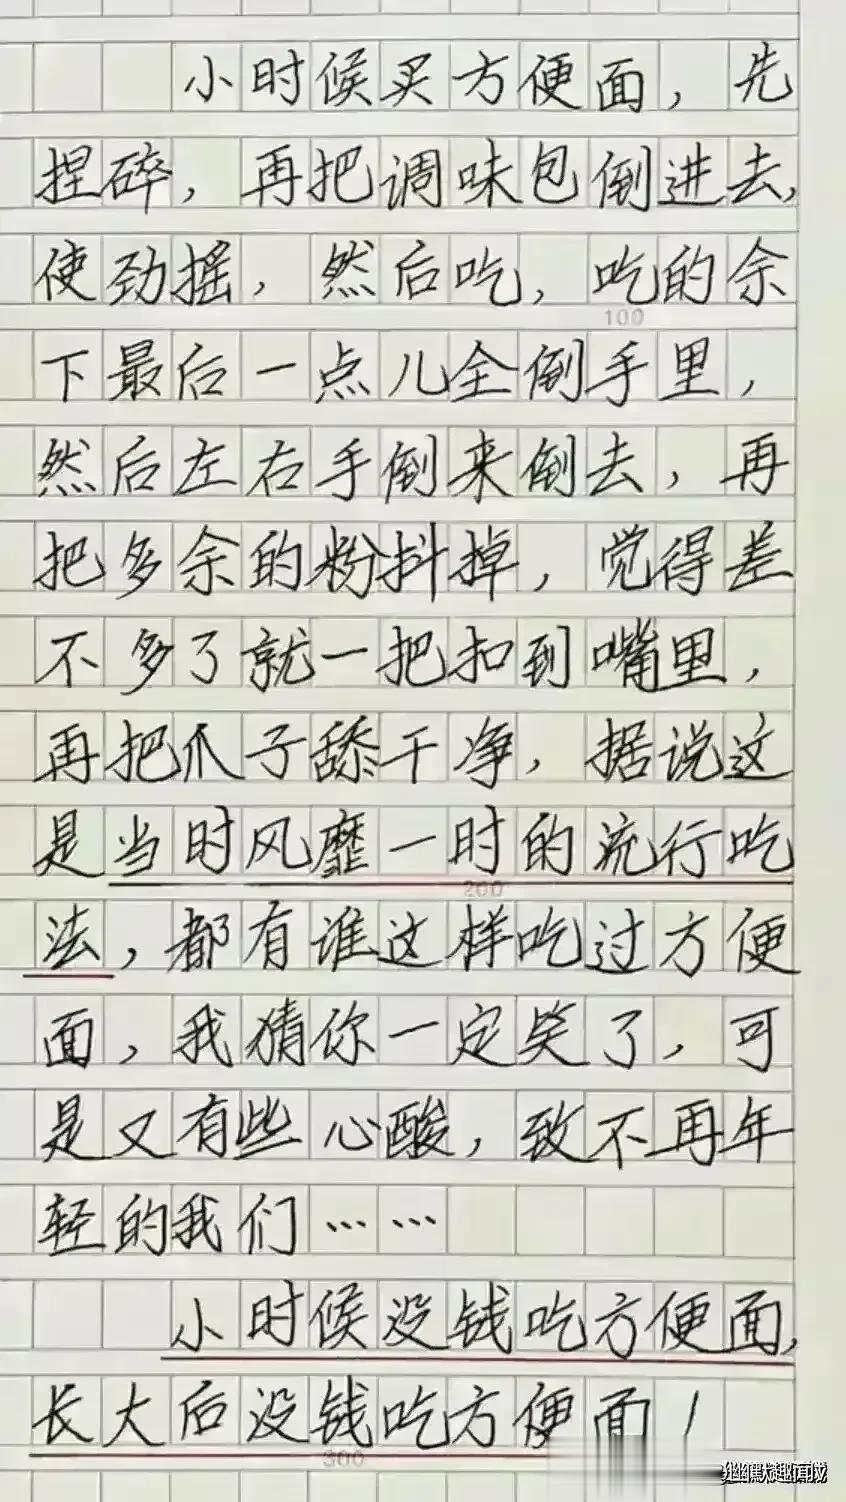 小时候买方便面，先
捏碎，再把调味包倒进去，
使劲摇，然后吃，吃的余
100
下最后一点儿全倒手里，
然后左右手倒来倒去，再
把多余的粉抖掉，觉得差
不多了就一把扣到嘴里，
再把爪子舔干净，据说这
是当时风靡一时的流行吃
200
法，都有谁这样吃过方便
面，我猜你一定笑了，可
是又有些心酸，致不再年
轻的我们……
小时候没钱吃方便面，
长大后没钱吃方便面！
300
幽默趣闻